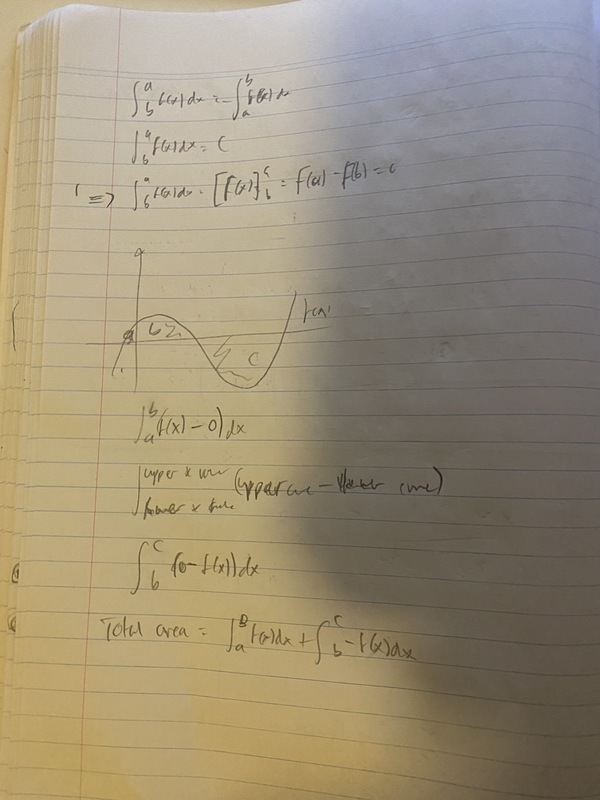 ∫_b^a f(x)dx = -∫_a^b f(x)dx
∫_b^a f(x)dx = C
=> ∫_b^a f(x)dx = [F(x)]_b^a = F(a) - F(b) = c
f(x)
b
C
∫_a^b (f(x) - 0)dx
∫_{lower x value}^{upper x value} (upper curve - lower curve)
∫_b^c (0 - f(x))dx
Total area = ∫_a^B f(x)dx + ∫_b^c -f(x)dx